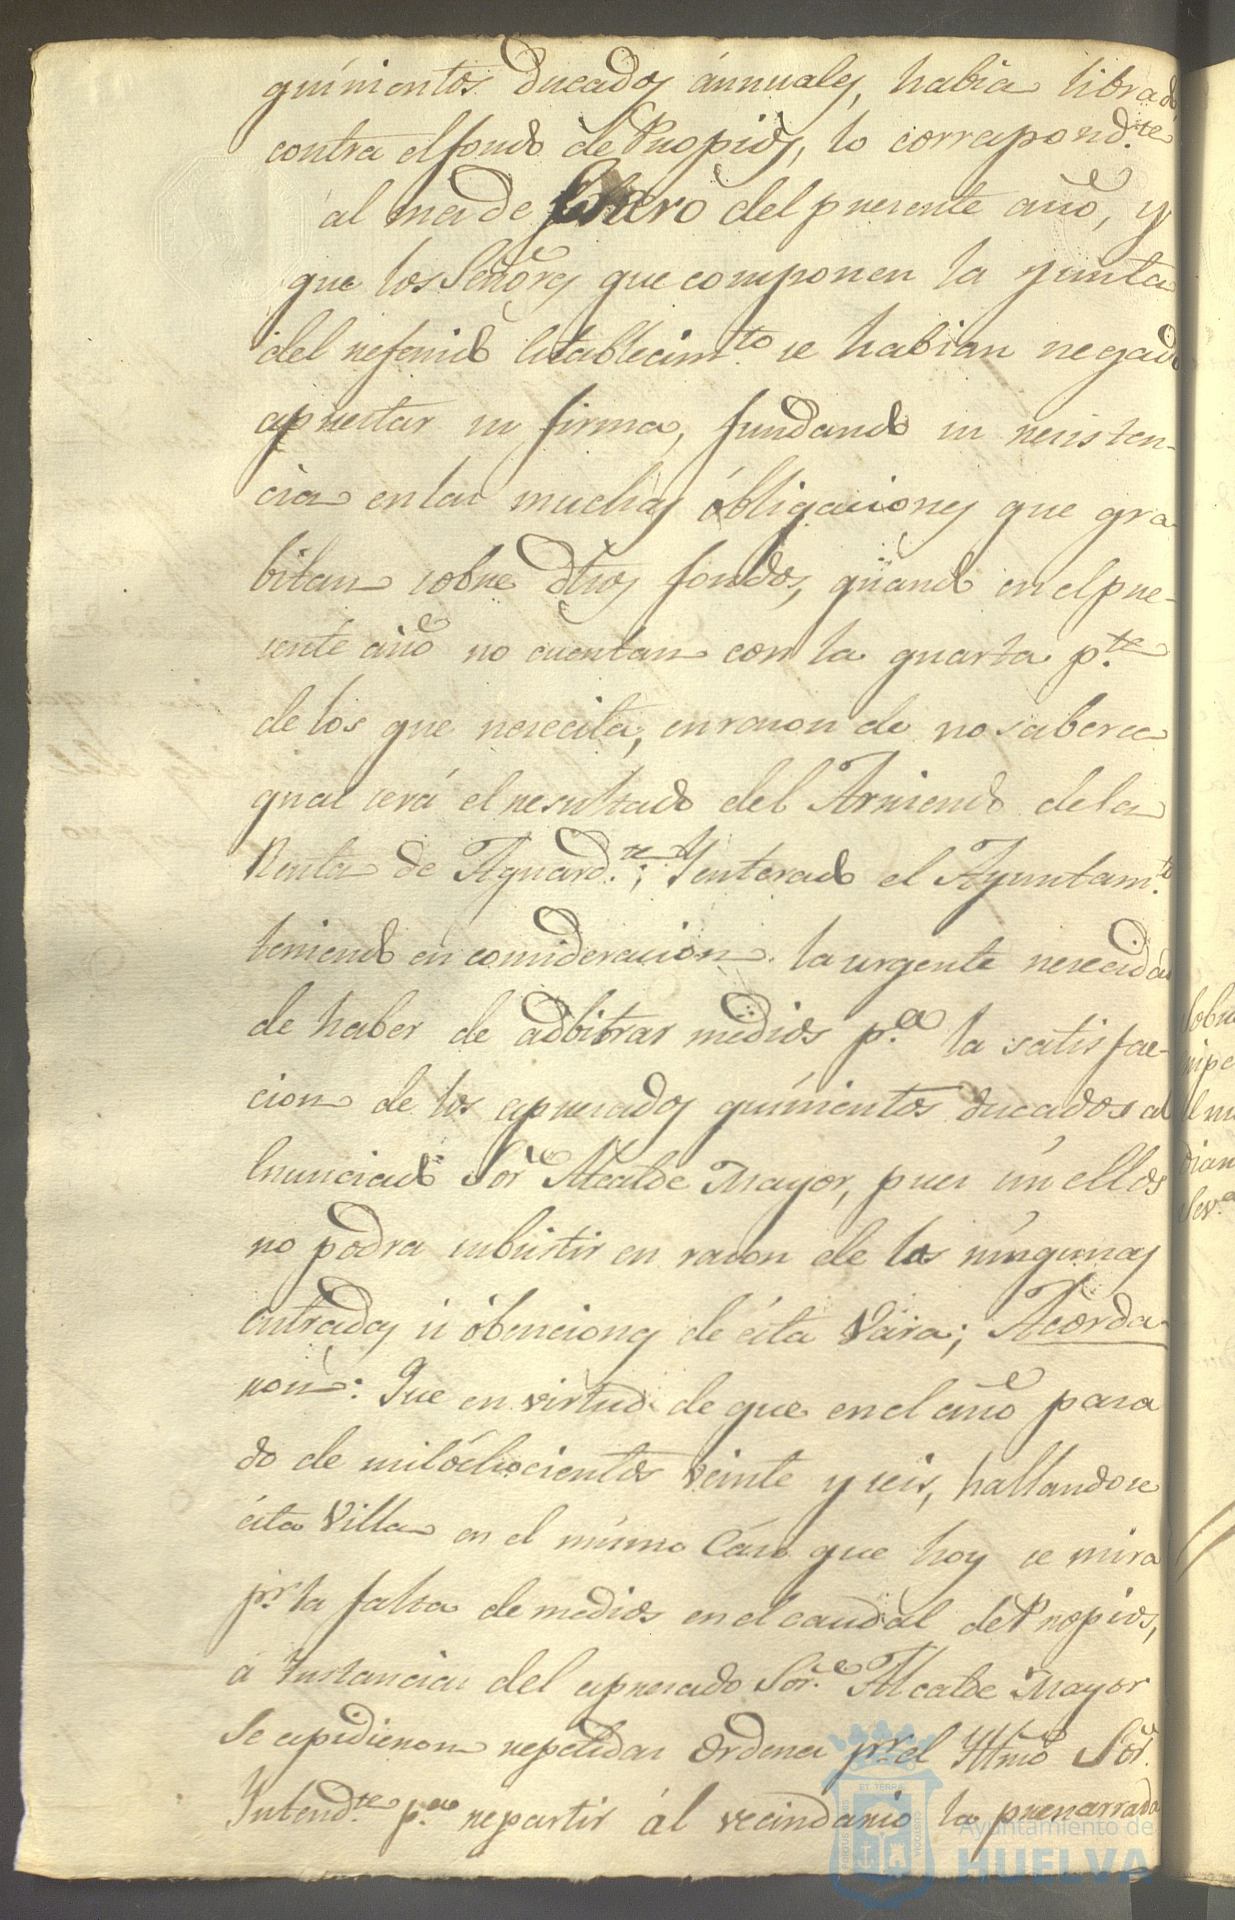 quinientos Ducados ánnuales, habia librado
contra el fondo de Propios, lo correspond.te
al mes de Enero del presente año, y
que los Señores que componen la Junta
del referido Establecim.to se habian negado
aprestar su firma, fundando su resisten-
cia en las muchas óbligaciones que gra
bitan sobre dhos fondos, quando en el pre-
sente año no cuentan con la quarta p.te
de los que nesecita, en razon de no saberse
qual será el resultado del Arriendo de la
Renta de Aguard.te; Y enterado el Ayuntam.to
teniendo en consideracion la urgente nesecidad
de haber de adbitrar medios p.a la satisfac-
cion de los expresados quinientos ducados al
Enunciado Sor. Alcalde Mayor, pues sin ellos
no podra subsistir en razon de las ningunas
entradas ú óbenciones de ésta Vara; Acorda-
ron: Que en virtud de que en el año pasa
do de mil óchocientos veinte y seis, hallandose
ésta Villa en el mismo Cáso que hoy se mira
pr. la falta de medios en el caudal de Propios,
á Instancias del expresado Sor. Alcalde Mayor
Se expidieron repetidas Ordenes pr. el Yltmo Sor.
Intend.te p.a repartir ál vecindario la prenarrada
Sobre
Sev.a
ET TERRAE
Ayuntamiento de
HUELVA